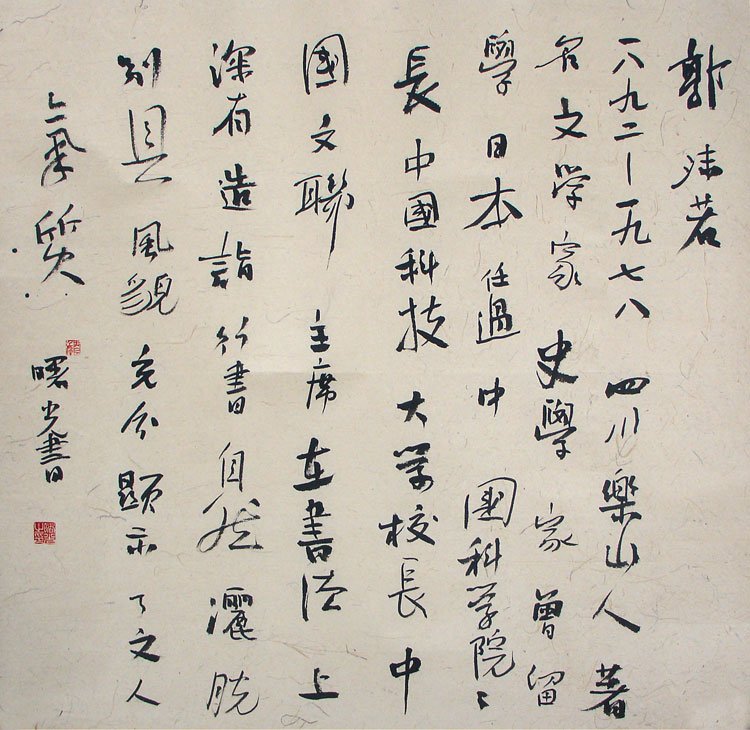 郭沫若
一八九二—一九七八 四川樂山人 著
名文学家 史學家 曾留
學日本 任過中國科学院々
長 中國科技大学校長 中
國文聯主席 在書法上
深有造詣 行書自然灑脱
別具風貌 充分顯示了文人
氣質
曙光書